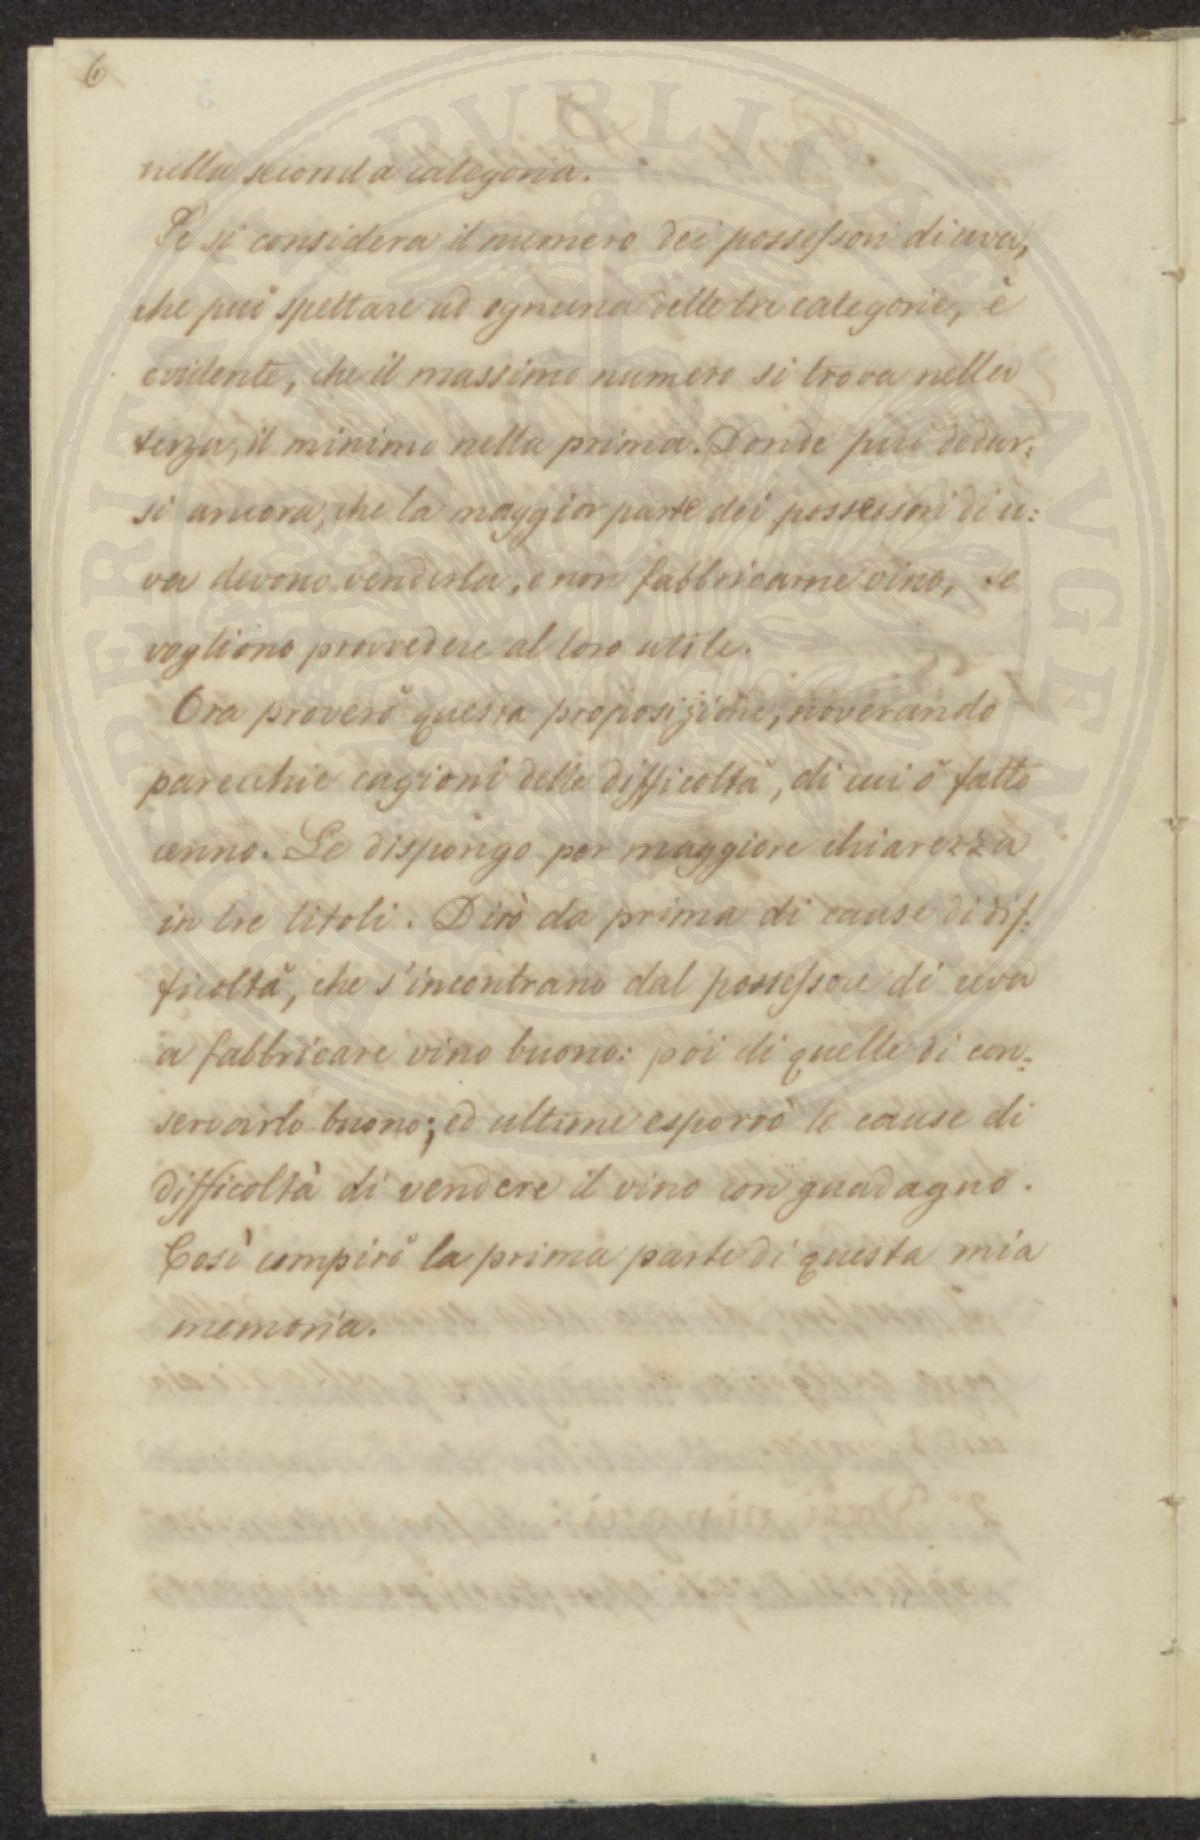 6
nella seconda categoria.
Se si considera il numero dei possessori di uva,
che può spettare ad ognuna delle tre categorie, è
evidente, che il massimo numero si trova nella
terza, il minimo nella prima. Donde può dedur:
si ancora, che la maggior parte dei possessori di u:
va devono venderla, e non fabbricarne vino, se
vogliono provvedere al loro utile.
Ora proverò questa proposizione, noverando
parecchie cagioni delle difficoltà, di cui ò fatto
cenno. Le dispongo per maggiore chiarezza
in tre titoli. Dirò da prima di cause di dif:
ficoltà, che s'incontrano dal possessore di uva
a fabbricare vino buono: poi di quelle di con:
servarlo buono; ed ultime esporrò le cause di
difficoltà di vendere il vino con guadagno.
Così compirò la prima parte di questa mia
memoria.
PROSPERITATI PVBLICAE AVGENDAE